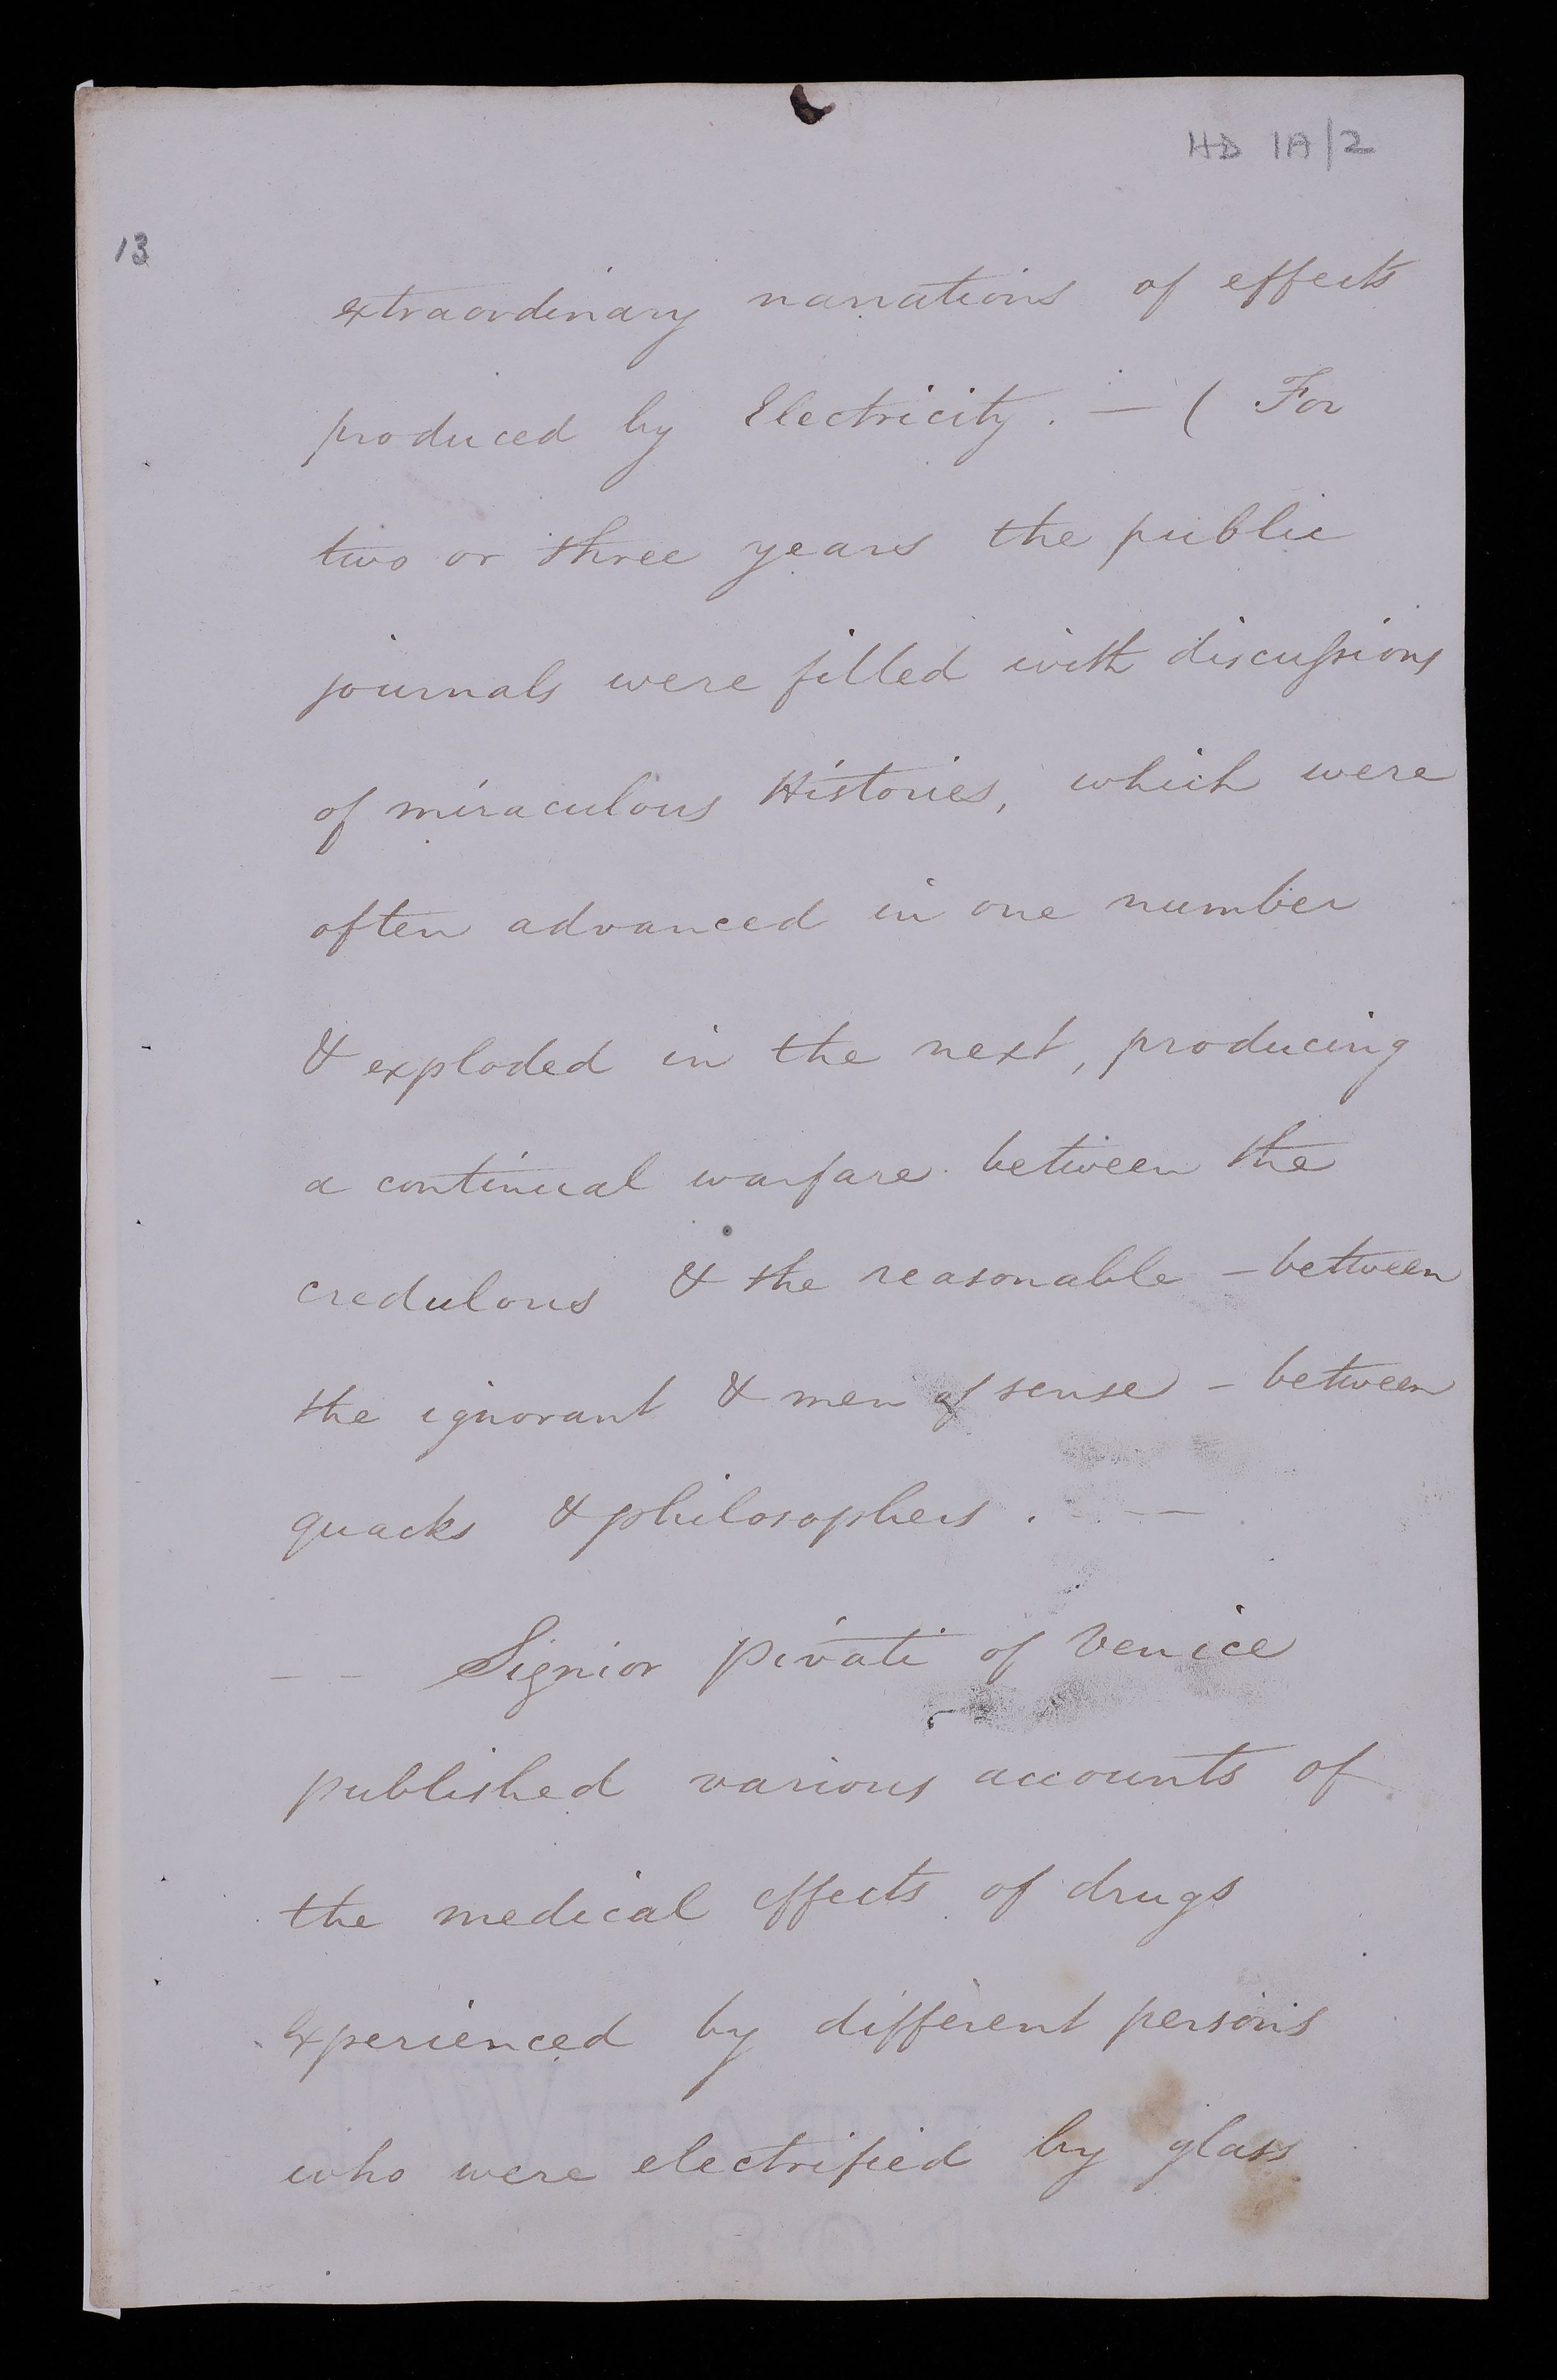 HD 1A/2
13
extraordinary narrations of effects
produced by Electricity. — ( For
two or three years the public
journals were filled with discussions
of miraculous Histories, which were
often advanced in one number
& exploded in the next, producing
a continual warfare between the
credulous & the reasonable – between
the ignorant & men of sense – between
quacks & philosophers. —
– – Signior Pivati of Venice
published various accounts of
the medical effects of drugs
experienced by different persons
who were electrified by glass